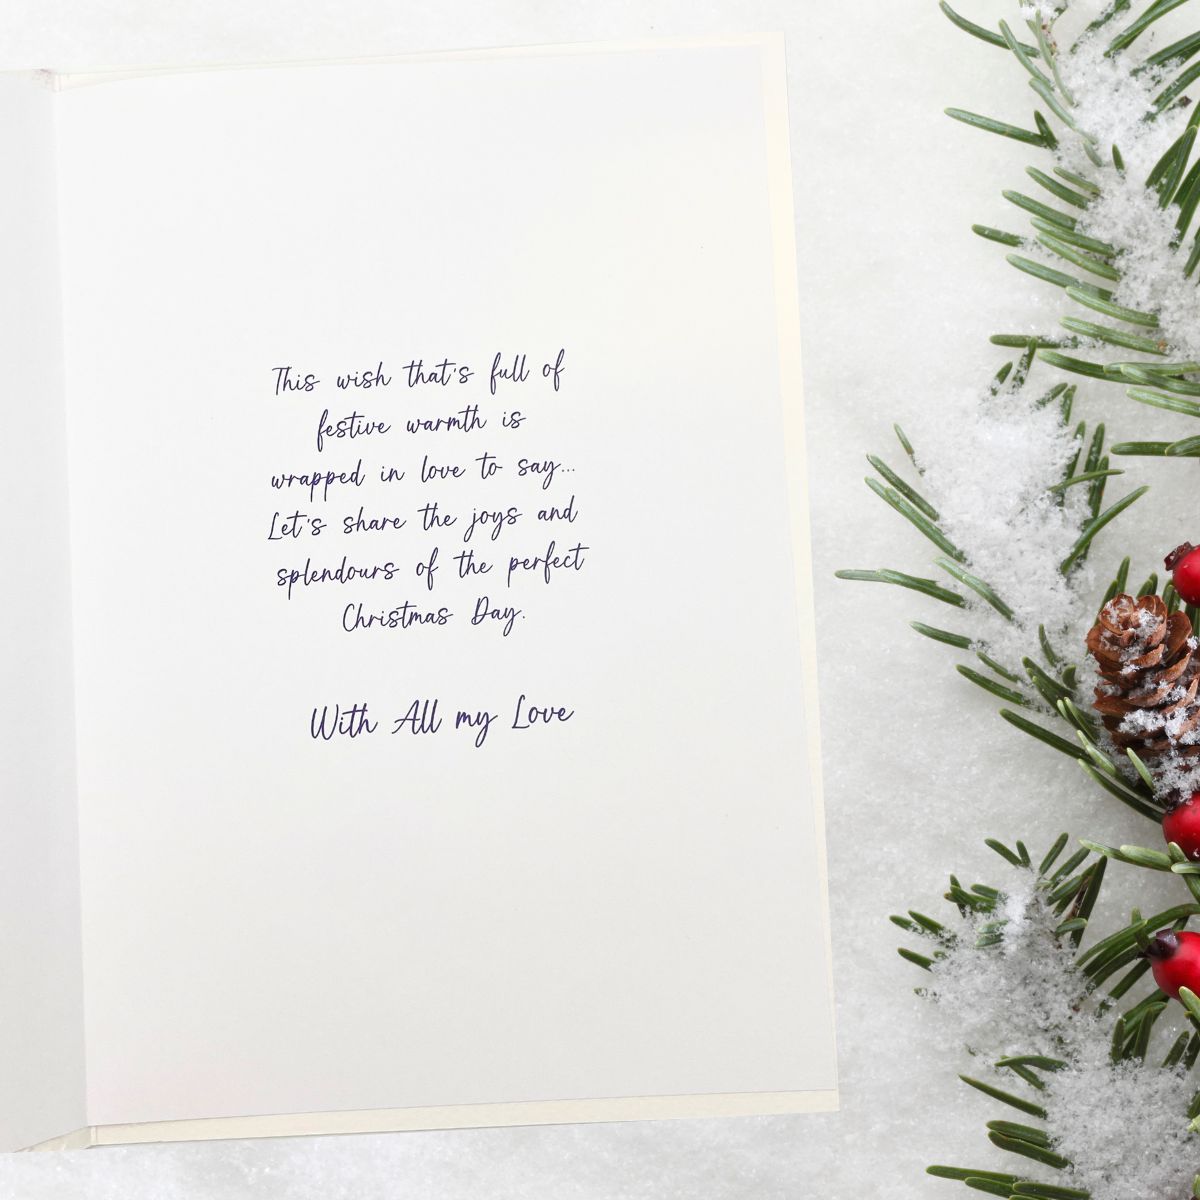 This wish that's full of
festive warmth is
wrapped in love to say...
Let's share the joys and
splendours of the perfect
Christmas Day.
With All my Love